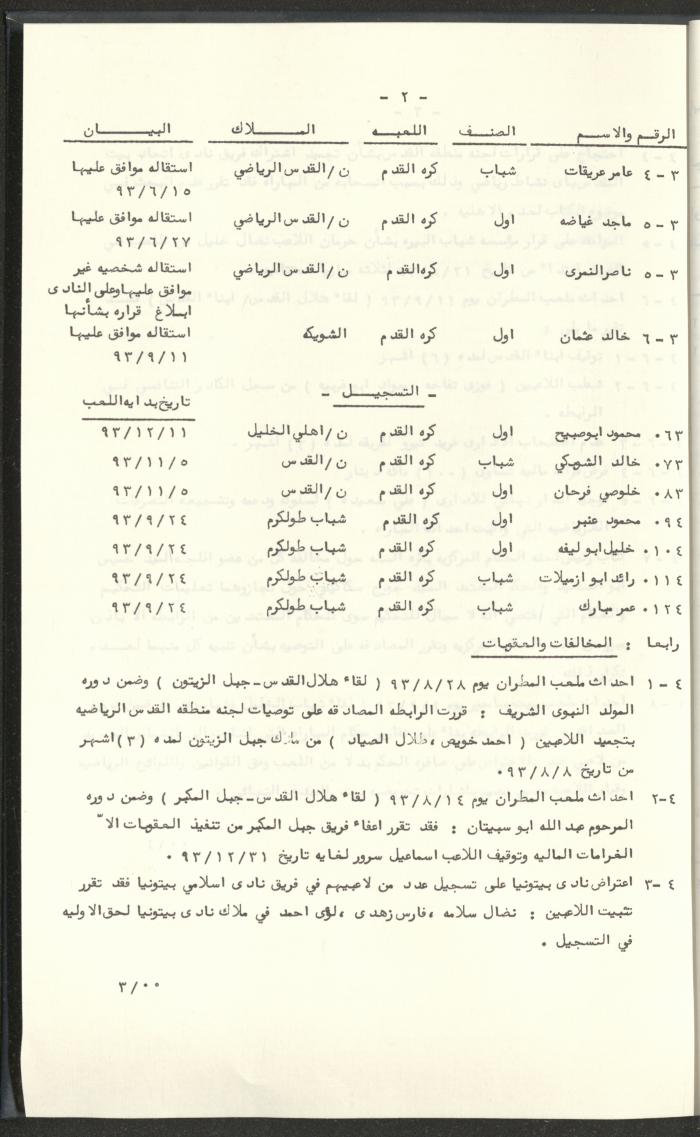 - ٢ -
الرقم والاسم الصنف اللعبه الملاك البيان
٣-٤ عامر عريقات شباب كره القدم ن/القدس الرياضي استقاله موافق عليها
٩٣/٦/١٥
٣-٥ ماجد غياضه اول كره القدم ن/القدس الرياضي استقاله موافق عليها
٩٣/٦/٢٧
٣-٥ ناصر النمرى اول كره القدم ن/القدس الرياضي استقاله شخصيه غير
موافق عليها وعلى النادى
ابلاغ قراره بشأنها
٣-٦ خالد عثمان اول كره القدم الشويكه استقاله موافق عليها
٩٣/٩/١١
- التسجيل -
تاريخ بدايه اللعب
٠٦٣ محمود ابوصبيح اول كره القدم ن/اهلي الخليل ٩٣/١٢/١١
٠٧٣ خالد الشويكي شباب كره القدم ن/القدس ٩٣/١١/٥
٠٨٣ خلوصي فرحان اول كره القدم ن/القدس ٩٣/١١/٥
٠٩٤ محمود عنبر اول كره القدم شباب طولكرم ٩٣/٩/٢٤
٠١٠٤ خليل ابو ليفه اول كره القدم شباب طولكرم ٩٣/٩/٢٤
٠١١٤ رائد ابو ازميلات شباب كره القدم شباب طولكرم ٩٣/٩/٢٤
٠١٢٤ عمر مبارك شباب كره القدم شباب طولكرم ٩٣/٩/٢٤
رابعا : المخالفات والعقوبات
٤-١ احداث ملعب المطران يوم ٩٣/٨/٢٨ ( لقاء هلال القدس-جبل الزيتون ) وضمن دوره
المولد النبوى الشريف : قررت الرابطه المصادقه على توصيات لجنه منطقه القدس الرياضيه
بتجميد اللاعبين ( احمد خويص ،طلال الصياد ) من ملاك جبل الزيتون لمده (٣) اشهر
من تاريخ ٩٣/٨/٨٠
٤-٢ احداث ملعب المطران يوم ٩٣/٨/١٤ ( لقاء هلال القدس-جبل المكبر ) وضمن دوره
المرحوم عبد الله ابو سبيتان : فقد تقرر اعفاء فريق جبل المكبر من تنفيذ العقوبات الاّ
الغرامات الماليه وتوقيف اللاعب اسماعيل سرور لغايه تاريخ ٩٣/١٢/٣١ ٠
٤-٣ اعتراض نادى بيتونيا على تسجيل عدد من لاعبيهم في فريق نادى اسلامي بيتونيا فقد تقرر
تثبيت اللاعبين : نضال سلامه ،فارس زهدى ،لؤى احمد في ملاك نادى بيتونيا لحق الاوليه
في التسجيل ٠
٣/٠٠